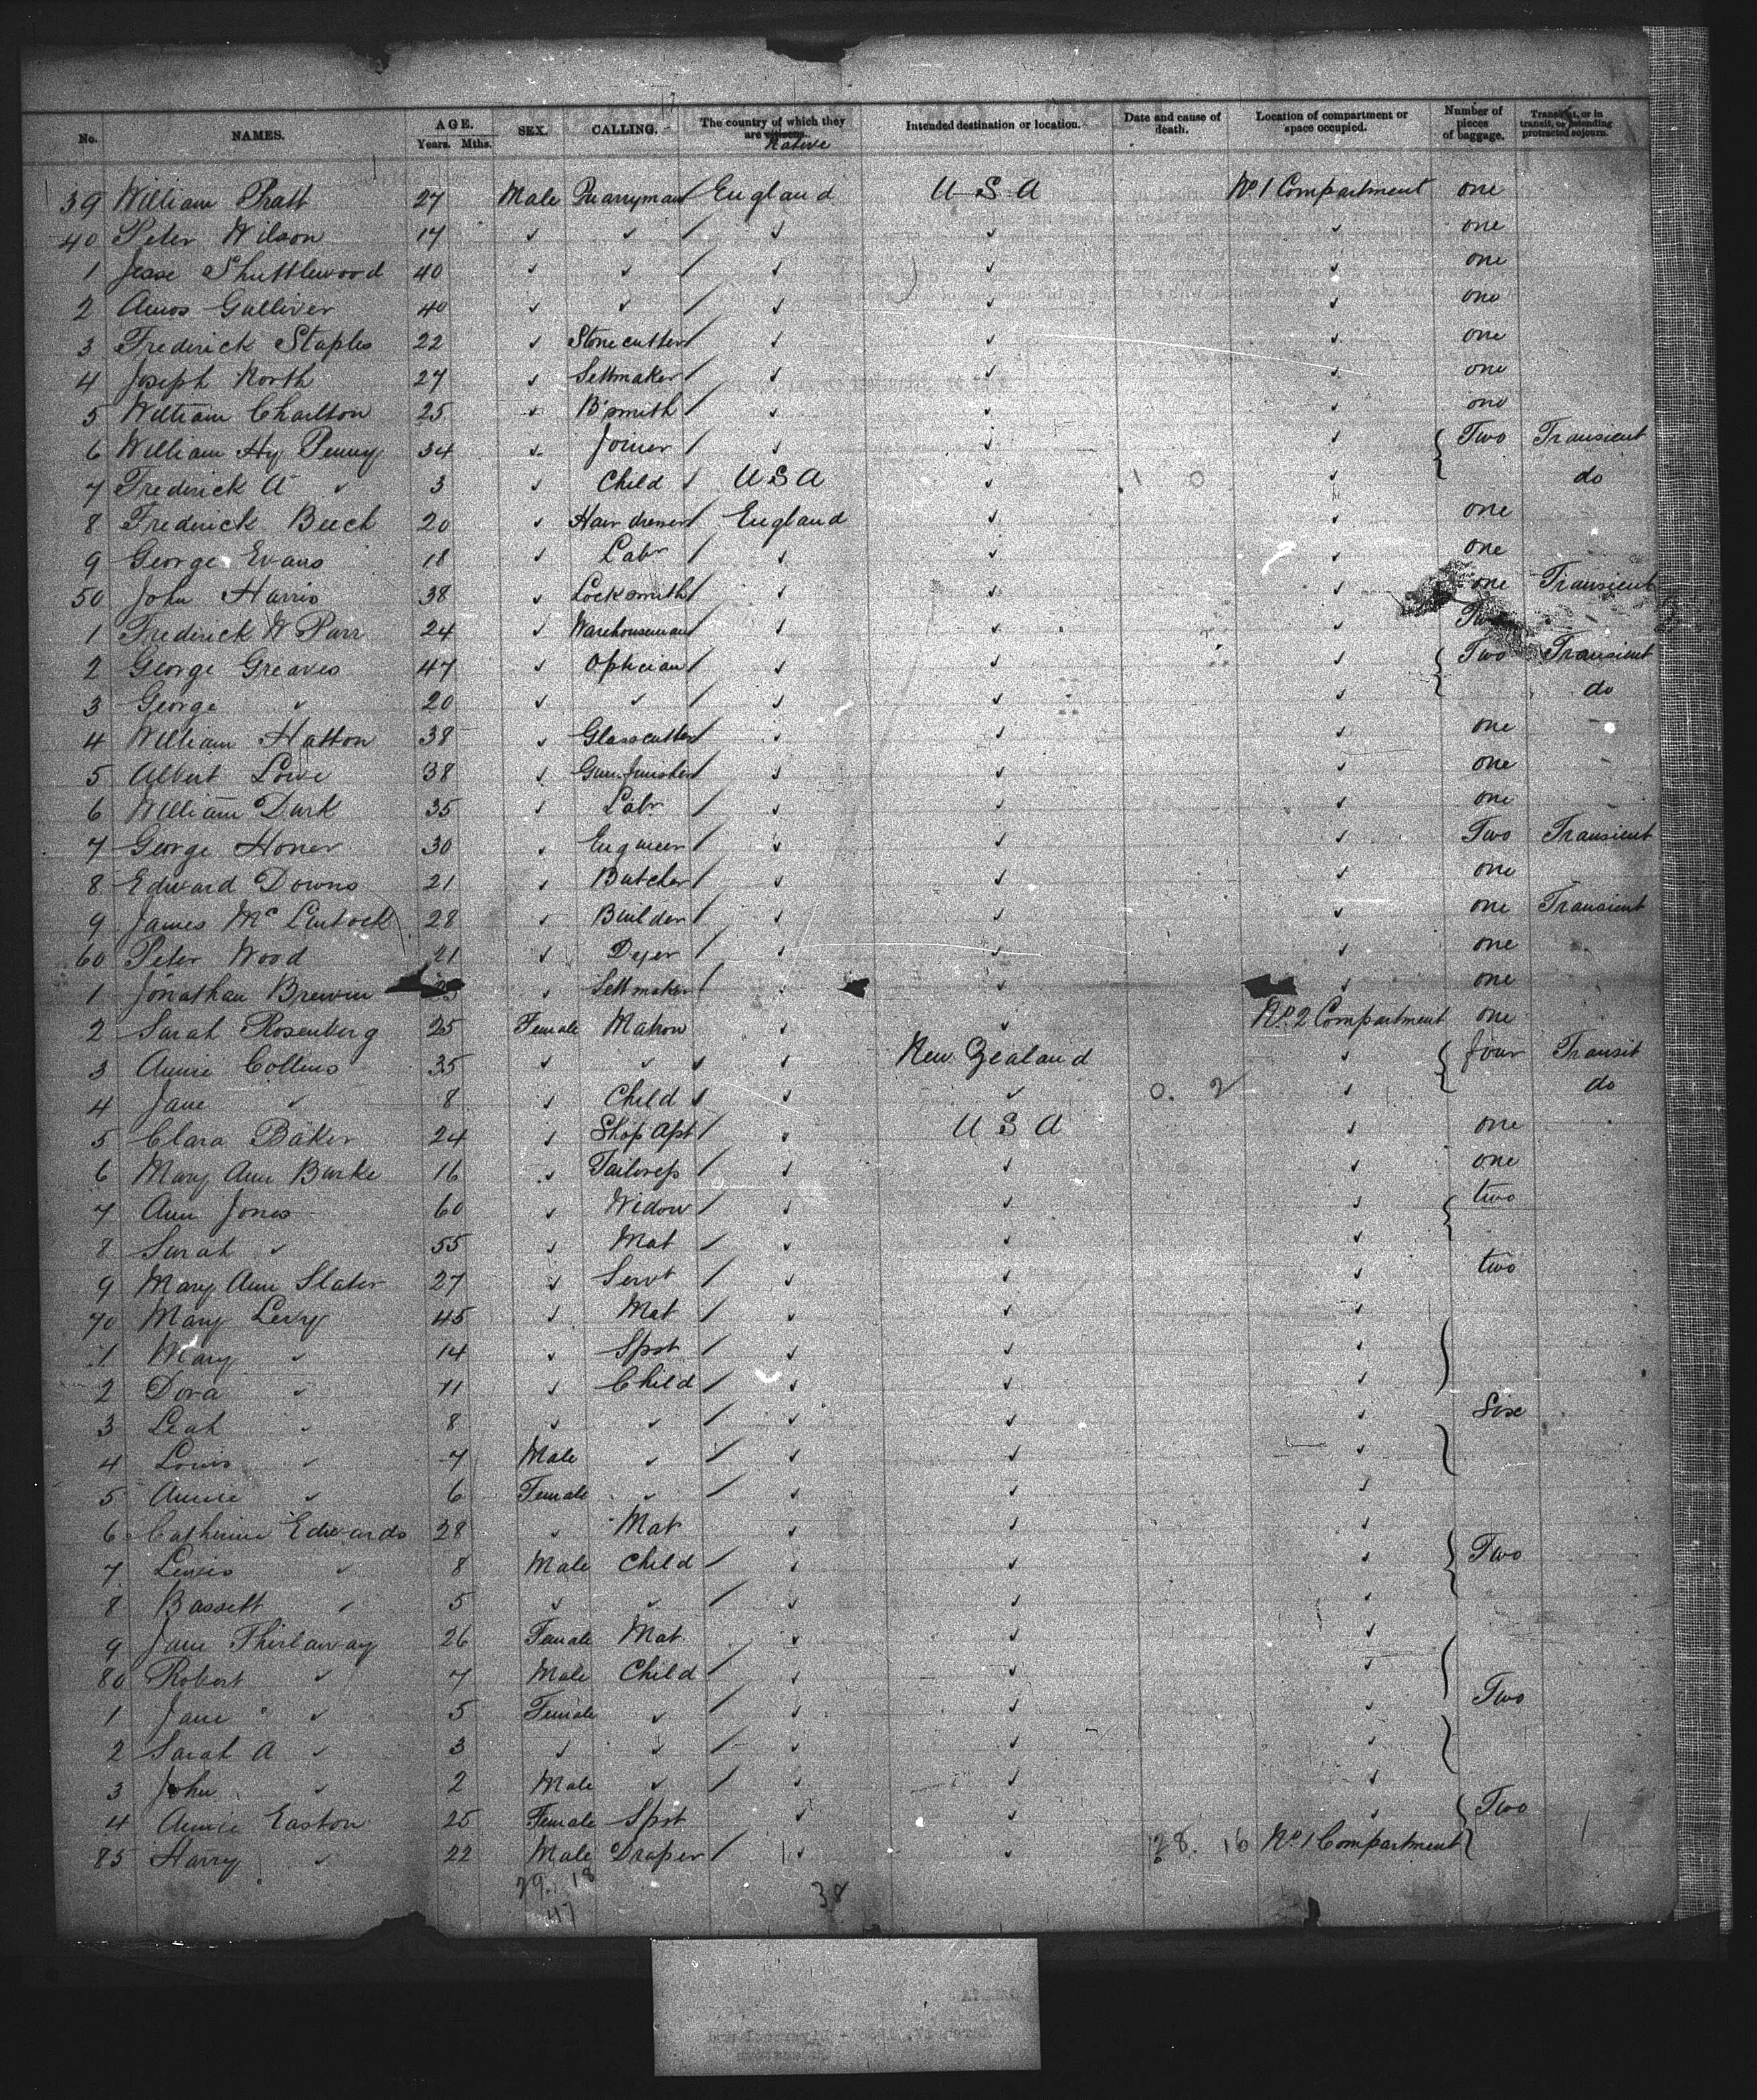 No. NAMES. AGE. Years. Mths. SEX. CALLING. The country of which they are citizens. Native Intended destination or location. Date and cause of death. Location of compartment or space occupied. Number of pieces of baggage. Transient, or in transit, or intending protracted sojourn.
39 William Pratt 27 Male Quarryman / England U S A No. 1 Compartment one
40 Peter Wilson 17 ✓ ✓ / ✓ ✓ ✓ one
1 Jesse Shuttlewood 40 ✓ ✓ / ✓ ✓ ✓ one
2 Amos Galliver 40 ✓ ✓ / ✓ ✓ ✓ one
3 Frederick Staples 22 ✓ Stonecutter / ✓ ✓ ✓ one
4 Joseph North 27 ✓ Settmaker / ✓ ✓ ✓ one
5 William Charlton 25 ✓ B'smith / ✓ ✓ ✓ one
6 William Hy Penny 34 ✓ Joiner / ✓ ✓ ✓ Two Transient
7 Frederick A ✓ 3 ✓ Child ✓ U S A ✓ 1 0 ✓ do
8 Frederick Beech 20 ✓ Hairdresser / England ✓ ✓ one
9 George Evans 18 ✓ Labr / ✓ ✓ ✓ one
50 John Harris 38 ✓ Locksmith / ✓ ✓ ✓ one Transient
1 Frederick W Parr 24 ✓ Warehouseman ✓ ✓ ✓ Two
2 George Greaves 47 ✓ Optician / ✓ ✓ ✓ Two Transient
3 George ✓ 20 ✓ ✓ / ✓ ✓ ✓ do
4 William Hatton 38 ✓ Glasscutter / ✓ ✓ ✓ one
5 Albert Lowe 38 ✓ Gun finisher / ✓ ✓ ✓ one
6 William Dark 35 ✓ Labr / ✓ ✓ ✓ one
7 George Honer 30 ✓ Engineer / ✓ ✓ ✓ Two Transient
8 Edward Downs 21 ✓ Butcher / ✓ ✓ ✓ one
9 James Mc Lintock 28 ✓ Builder / ✓ ✓ ✓ one Transient
60 Peter Wood 21 ✓ Dyer / ✓ ✓ ✓ one
1 Jonathan Brewin ✓ Settmaker / ✓ ✓ ✓ one
2 Sarah Rosenberg 25 Female Matron ✓ ✓ No. 2 Compartment one
3 Annie Collins 35 ✓ ✓ ✓ ✓ New Zealand ✓ four Transit
4 Jane ✓ 8 ✓ Child ✓ ✓ ✓ 0. 2 ✓ do
5 Clara Baker 24 ✓ Shop Apt / ✓ U S A ✓ one
6 Mary Ann Burke 16 ✓ Tailoress / ✓ ✓ ✓ one
7 Ann Jones 60 ✓ Widow / ✓ ✓ ✓ two
8 Sarah ✓ 55 ✓ Mat / ✓ ✓ ✓
9 Mary Ann Slater 27 ✓ Servt / ✓ ✓ ✓ two
70 Mary Levy 45 ✓ Mat / ✓ ✓ ✓
1 Mary ✓ 14 ✓ Spst / ✓ ✓ ✓
2 Dora ✓ 11 ✓ Child / ✓ ✓ ✓
3 Leah ✓ 8 ✓ ✓ / ✓ ✓ ✓ Six
4 Louis ✓ 7 Male ✓ / ✓ ✓ ✓
5 Annie ✓ 6 Female ✓ / ✓ ✓ ✓
6 Catherine Edwards 28 ✓ Mat ✓ ✓ ✓
7 Lewis ✓ 8 Male Child / ✓ ✓ ✓ Two
8 Bassett ✓ 5 ✓ ✓ / ✓ ✓ ✓
9 Jane Thirlaway 26 Female Mat ✓ ✓ ✓
80 Robert ✓ 7 Male Child / ✓ ✓ ✓
1 Jane ✓ 5 Female ✓ / ✓ ✓ ✓ Two
2 Sarah A ✓ 3 ✓ ✓ / ✓ ✓ ✓
3 John ✓ 2 Male ✓ / ✓ ✓ ✓
4 Annie Easton 25 Female Spst ✓ ✓ ✓ Two
85 Harry ✓ 22 Male Draper / ✓ ✓ 28. 16 No. 1 Compartment
29. 18
38
47